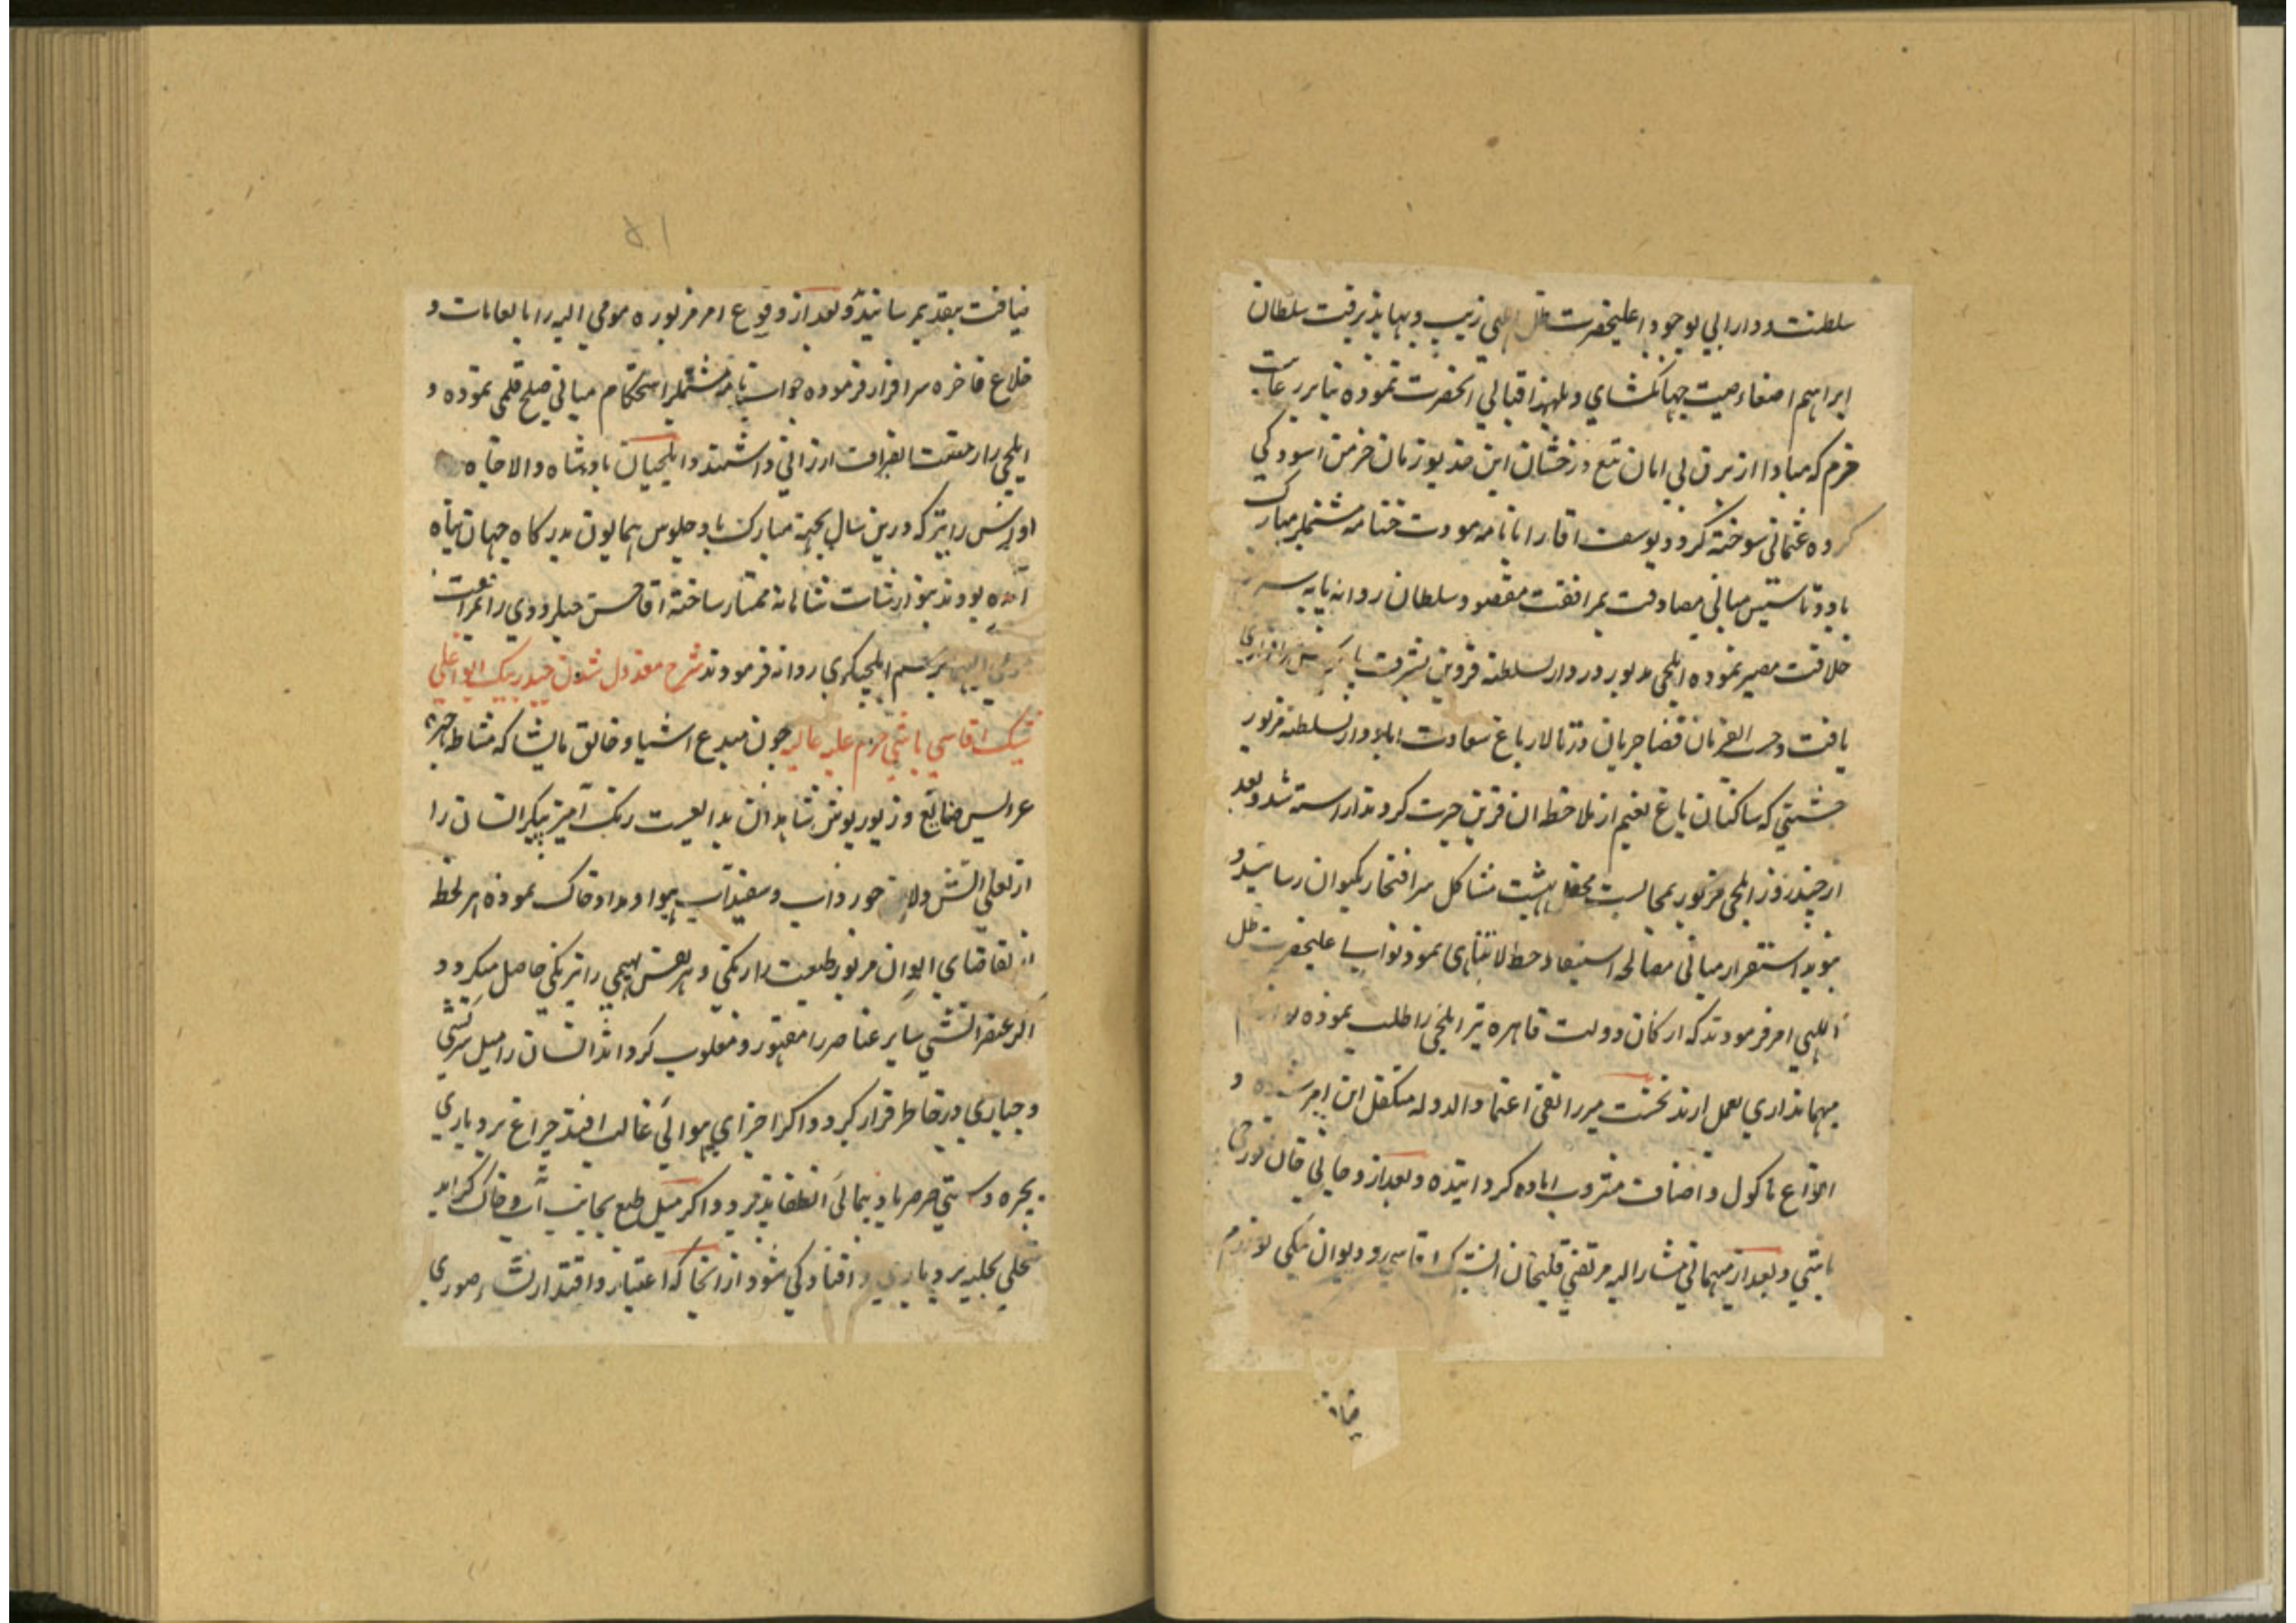 سلطنت و دارایی بوجود اعلیحضرت ظل الهی زیب و بها پذیرفت سلطان
ابراهیم اصغاء صیت جهانگشای و بلند اقبالی آنحضرت نموده بنابر رعایت
حزم که مبادا از برق بی امان تیغ درخشان این خدیو زمان خرمن آسودگی
کروه عثمانی سوخته کردد یوسف اقا را با نامه مودت ختامه مشتملبر مبارک
باد و تاسیس مبانی مصادقت بمرافقت مقصود سلطان روانه پایه سریر
خلافت مصیر نموده ایلچی مذبور در دار السلطنه قزوین بشرف پابوس سرافرازی
یافت و حسب الفرمان قضا جریان در تالار باغ سعادت اباد دار السلطنه مزبور
جشنی که ساکنان باغ نعیم از ملاحظه آن قرین حیرت کردند آراسته شد و بعد
از چند روز ایلچی مزبور بمجالست محفل بهشت مشاکل سر افتخار بکیوان رسانید و
بنوید استقرار مبانی مصالحه استسعاد حظ لا یتناهی نمود نواب اعلیحضرت ظل
اللهی امر فرمودند که ارکان دولت قاهره نیز ایلچی را طلب نموده لوازم
مهمانداری بعمل ارند نخست میرزا تقی اعتماد الدوله متکفل این امر شده و
انواع ماکول و اصناف مشروب اماده کردانیده و بعد از و جانی خان قورچی
باشی و بعد از مهمانی مشار الیه مرتضی قلیخان ایشیک اقاسی و دیوان بیکی لوازم
ضیافت
۵۱
ضیافت بتقدیم رسانیده و بعد از وقوع امر مزبوره مومی الیه را بانعامات و
خلاع فاخره سرافراز فرموده جواب نامه مشتملبر استحکام مبانی صلح قلمی نموده و
ایلچی را رخصت انصراف ارزانی داشتند و ایلچیان پادشاه والا جاه
اورس را نیز که درین سال بجهة مبارک باد جلوس همایون بدرکاه جهان پناه
آمده بودند بنوازشات شاهانه ممتاز ساخته اقا حسن جبلرودی را بمرافقت
مومی الیهما برسم ایلچیگری روانه فرمودند شرح معزول شدن حیدر بیک ایواغلی
ایشیک اقاسی باشی حرم علیه عالیه چون مبدع اشیا و خالق مایشا که مشاطه چهره
عرایس صنایع و زیور پوش شاهدان بدایعست رنک آمیزی پیکر انسان را
از لعلی آتش و لاجورد آب و سفیداب هوا و مداد خاک نموده هر لحظه
از تقاضای الوان مزبور طبیعت را رنکی و هر نفس بهیمی را نیرنکی حاصل میکردد
اکر عنصر آتشی سایر عناصر را مقهور و مغلوب کرداند انسان را میل سرکشی
و جباری در خاطر قرار کیرد و اکر اجزای هوائی غالب افتد چراغ بردباری
بخیره دستی صرصر باد پیمائی انطفا پذیرد و اکر میل طبع بجانب آب و خاک کراید
متحلی بحلیه بردباری و افتادکی شود از انجا که اعتبار و اقتدار نشاء صوری